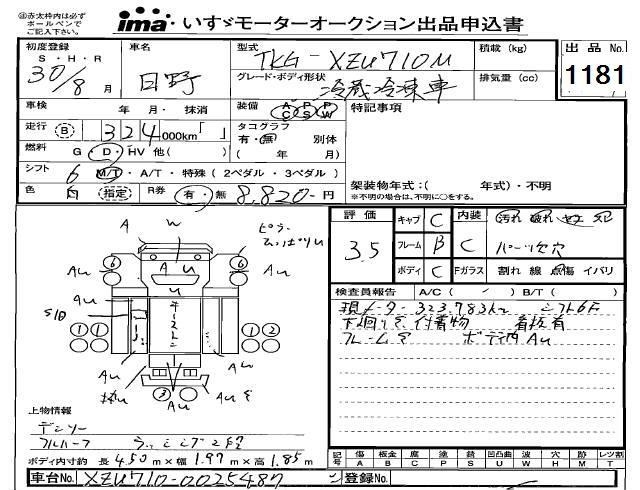 ㊟赤太枠内は必ず
ボールペンで
ご記入下さい。
ima いすゞモーターオークション出品申込書
初度登録
S・H・R
30/8 月
車名
日野
型式
TKG-XZU710M
積載 (kg)
グレード・ボディ形状
冷蔵冷凍車
排気量 (cc)
出品 No.
1181
車検 年 月・抹消
装備 A C P S P W
特記事項
走行 B 324 000km「 」
タコグラフ
有・無 別体
( 年 月)
燃料 G・D・HV 他( )
シフト 6 M/T・A/T・特殊 (2ペダル・3ペダル)
架装物年式:( 年式)・不明
※不明の場合は、不明に○をする。
色 白 指定 R券 有・無 8,820-円
評価
3.5
キャブ C
フレーム B
ボディ C
内装 C
汚れ 破れ
パーツ欠 穴
Fガラス 割れ 線 点傷 イバリ
検査員報告 A/C ( / ) B/T ( )
現メーター 323,783km シフト6F
下廻りサ 付着物 看板有
フレームサ ボディ内 AU
A W
AU
6 6
AU AU
A U
U
キーストン
S/D
1 1 1 2
AU AU W
AU 3 AU
上物情報
デンソー
フルハーフ
ボディ内寸約 長 4.50 m×幅 1.97 m×高 1.85 m
記号 傷 A 板金 B 腐 C 塗 P 錆 S 凹凸曲 U 波 W 穴 H 跡 M レツ割 T
車台No. XZU710-0025487
登録No.